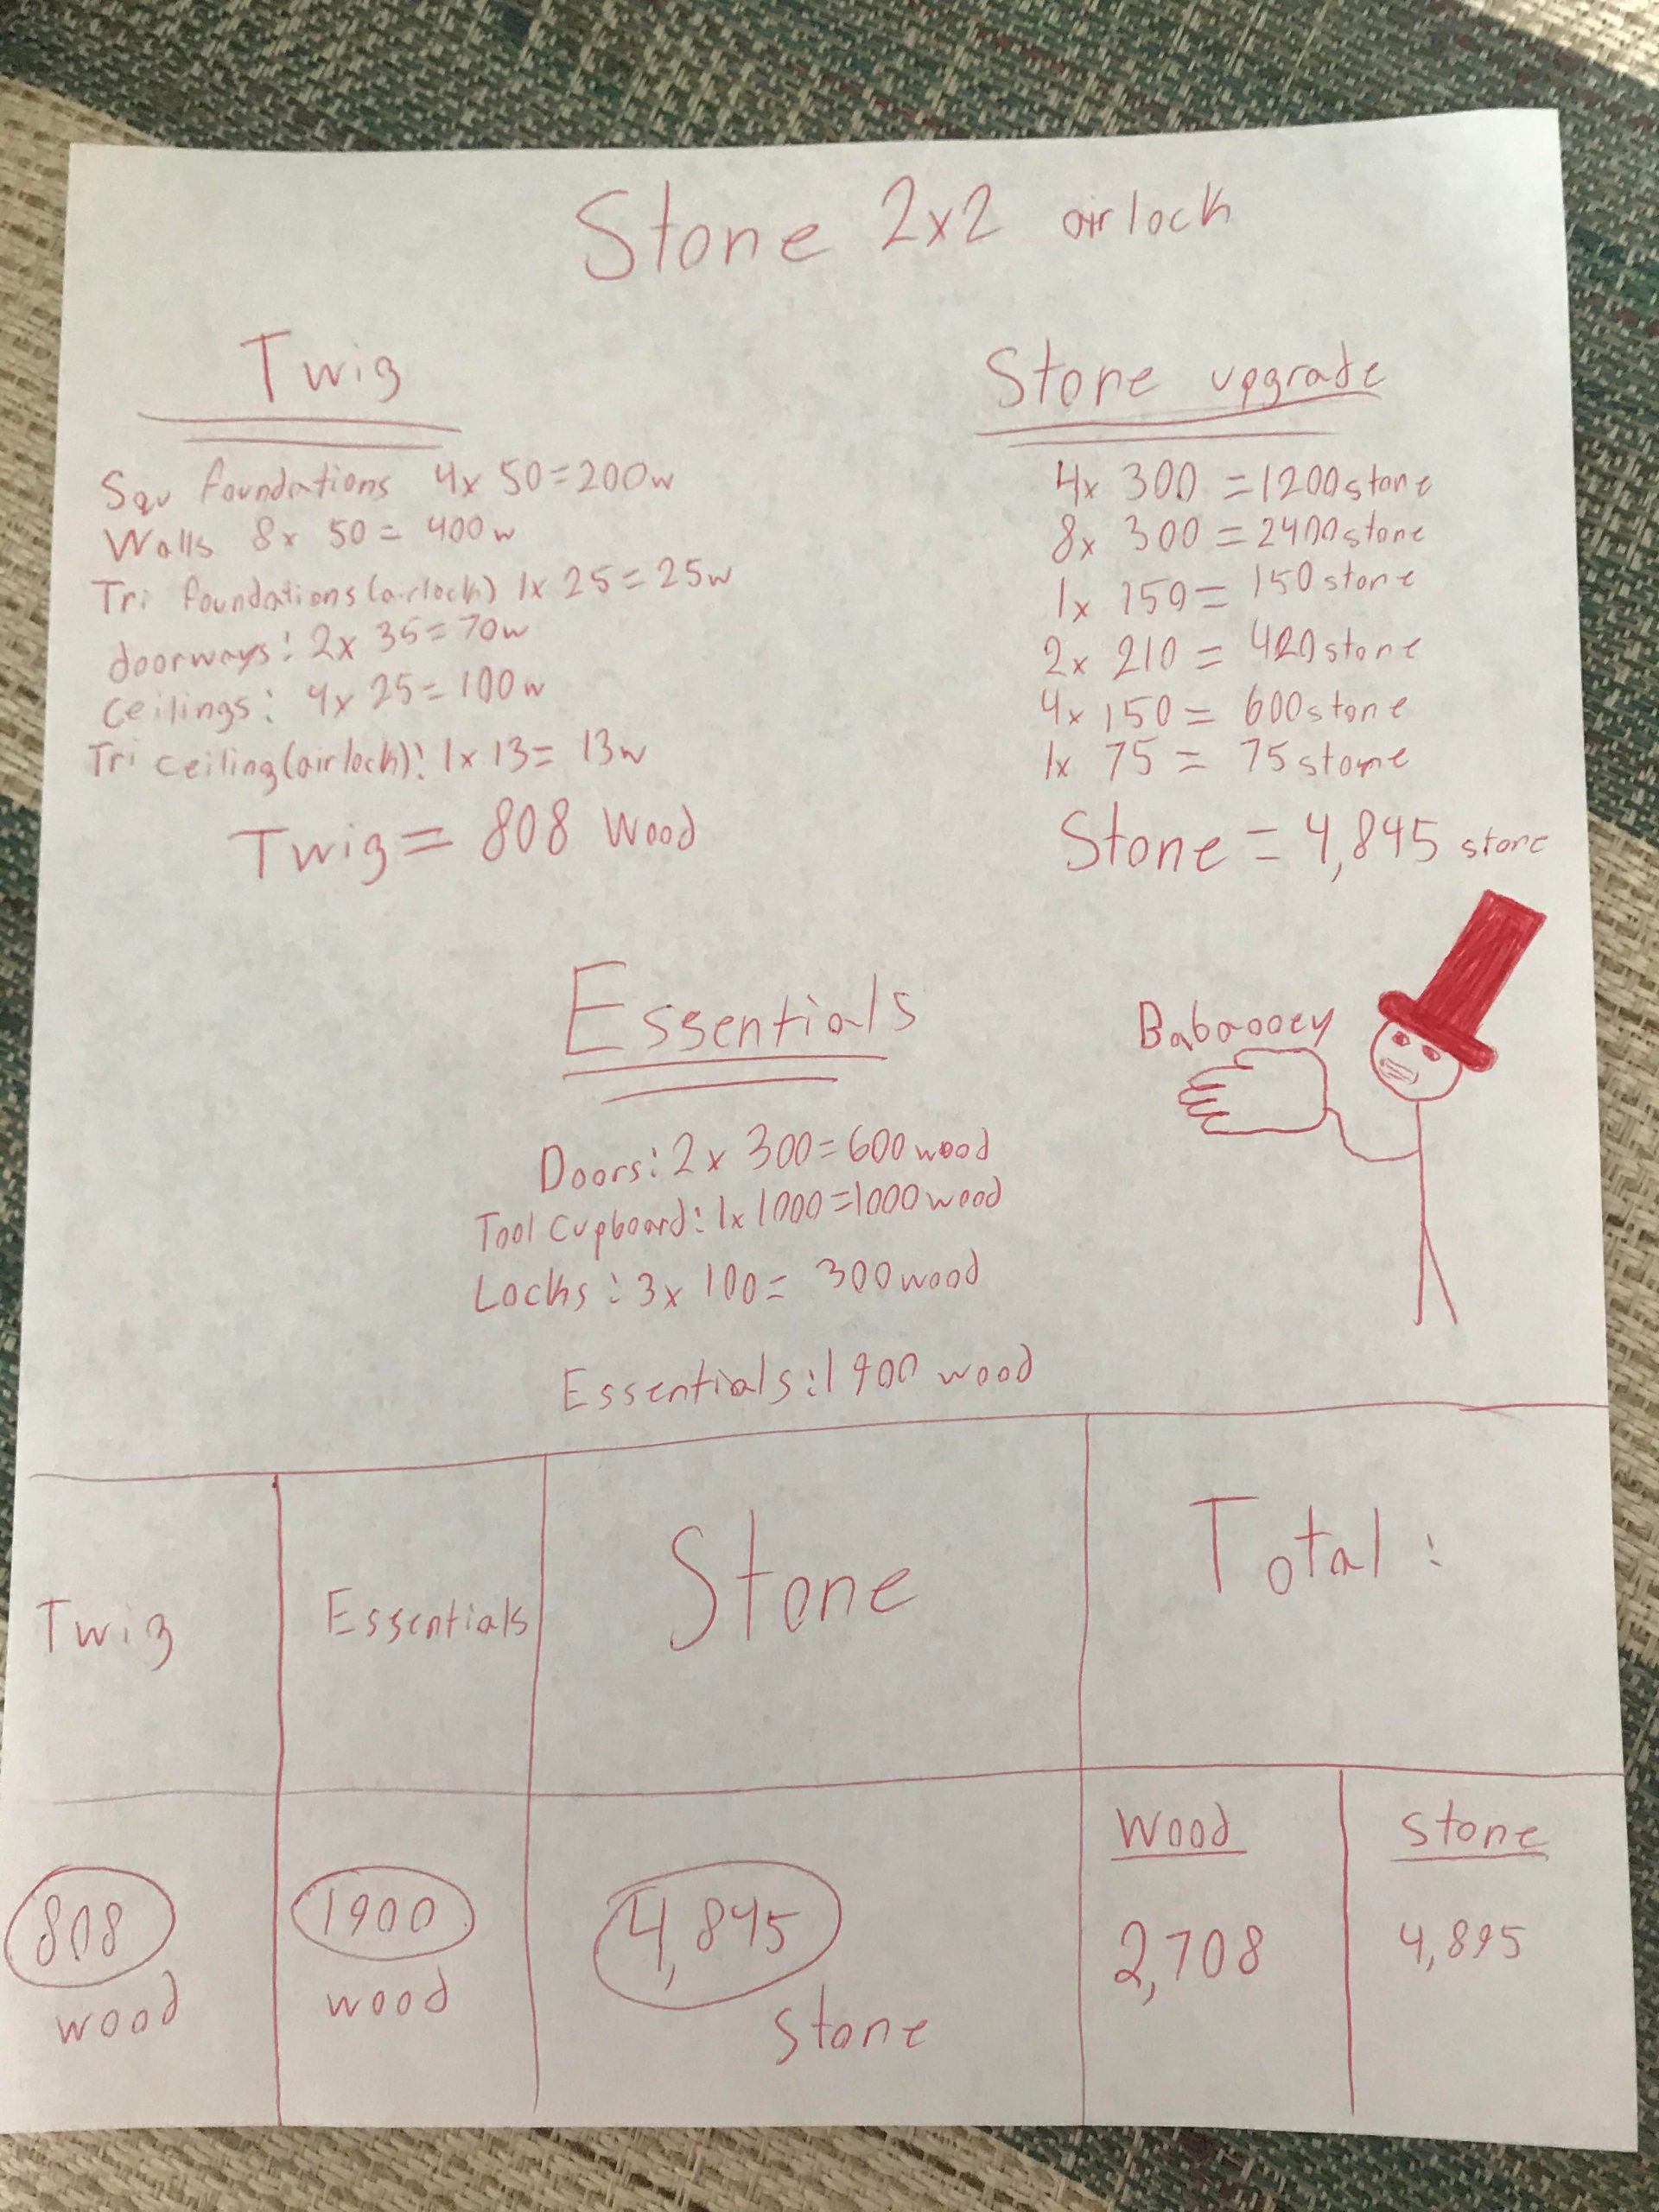 Stone 2x2 airlock
Twig
Squ foundations 4x 50=200w
Walls 8x 50= 400w
Tri foundations(airlock) 1x 25=25w
doorways: 2x 35=70w
ceilings: 4x 25=100w
Tri ceiling(airlock): 1x 13= 13w
Twig= 808 Wood
Stone upgrade
4x 300 =1200stone
8x 300=2400stone
1x 150= 150stone
2x 210= 420stone
4x 150= 600stone
1x 75= 75stone
Stone=4,845 stone
Essentials
Babaooey
Doors: 2x 300=600wood
Tool Cupboard: 1x 1000=1000wood
Locks: 3x 100= 300wood
Essentials:1900 wood
Twig
Essentials
Stone
Total:
808
wood
1900
wood
4,845
stone
Wood
2,708
stone
4,895